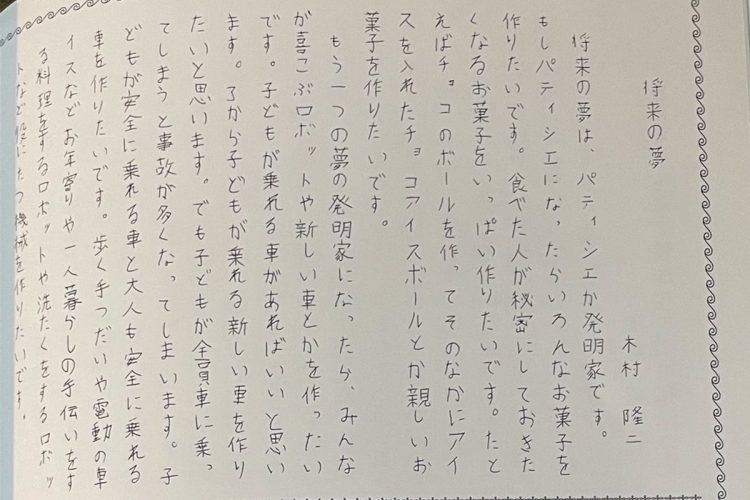 将来の夢
木村 隆二
将来の夢は、パティシエか発明家です。
もしパティシエになったらいろんなお菓子を
作りたいです。食べた人が秘密にしておきた
くなるお菓子をいっぱい作りたいです。たと
えばチョコのボールを作ってそのなかにアイ
スを入れたチョコアイスボールとか親しいお
菓子を作りたいです。
もう一つの夢の発明家になったら、みんな
が喜こぶロボットや新しい車とかを作ったい
です。子どもが乗れる車があればいいと思い
ます。3から子どもが乗れる新しい車を作り
たいと思います。でも子どもが全員車に乗っ
てしまうと事故が多くなってしまいます。子
どもが安全に乗れる車と大人も安全に乗れる
車を作りたいです。歩く手つだいや電動の車
イスなどお年寄りや一人暮らしの手伝いをす
る料理をするロボットや洗たくをするロボッ
トなど役にたつ機械を作りたいです。